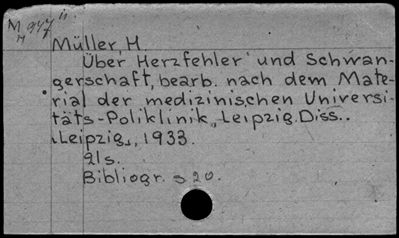 M 977
M
Müller, H.
Über Herzfehler und Schwan-
gerschaft, bearb. nach dem Mate-
rial der medizinischen Universi-
täts-Poliklinik, Leipzig. Diss..
Leipzig, 1933.
21s.
Bibliogr. s 20.